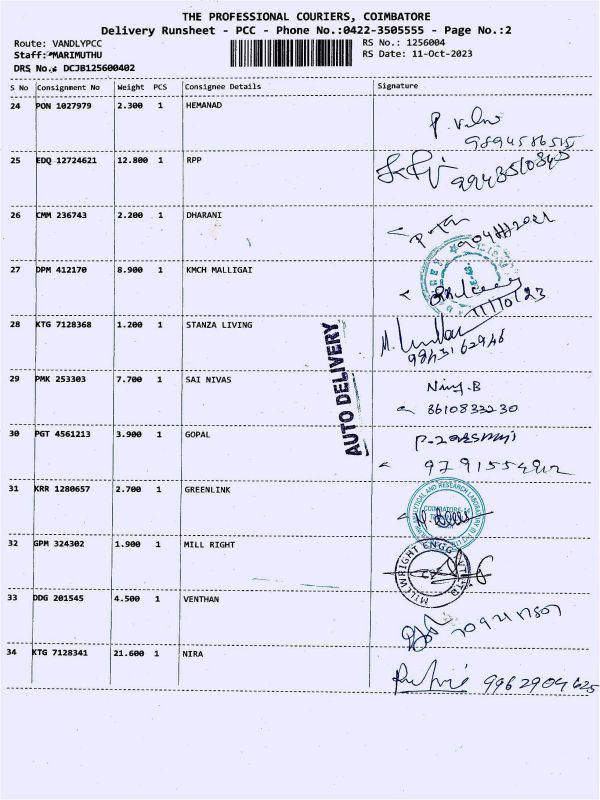 THE PROFESSIONAL COURIERS, COIMBATORE
Delivery Runsheet - PCC - Phone No.:0422-3505555 - Page No.:2
Route: VANDLYPCC
RS No.: 1256004
Staff: MARIMUTHU
RS Date: 11-Oct-2023
DRS No. DCJB125600402
S No Consignment No Weight PCS Consignee Details Signature
24 PON 1027979 2.300 1 HEMANAD
9894586515
25 EDQ 12724621 12.800 1 RPP
26 CMM 236743 2.200 1 DHARANI
27 DPM 412170 8.900 1 KMCH MALLIGAI
11/10/23
28 KTG 7128368 1.200 1 STANZA LIVING
AUTO DELIVERY
29 PMK 253303 7.700 1 SAI NIVAS
8610833230
30 PGT 4561213 3.900 1 GOPAL
31 KRR 1280657 2.700 1 GREENLINK
32 GPM 324302 1.900 1 MILL RIGHT
MILLWRIGHT ENGG
33 DDG 201545 4.500 1 VENTHAN
34 KTG 7128341 21.600 1 NIRA
9962904625